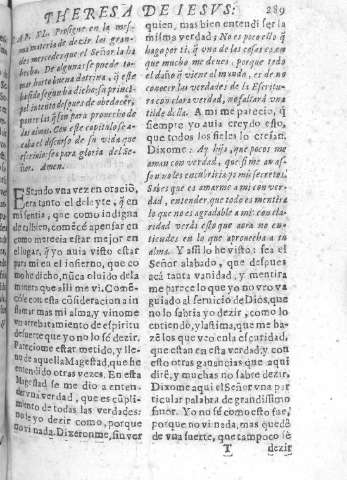 THERESA DE IESVS: 289
CAP. XL. Prosigue en la mes-
ma materia de dezir las gran-
des mercedes que el Señor la ha
hecho. De algunas se puede to-
mar harto buena dotrina, q̃ este
ha sido segun ha dicho su princi-
pal intento despues de obedecer,
poner las q̃ son para prouecho de
las almas. Con este capitulo se aca-
ba el discurso de su vida que
escriuio: sea para gloria del Se-
ñor. Amen.
EStando vna vez en oraciõ,
era tanto el deleyte, q̃ en
mi sentia, que como indigna
de tal bien, començè apensar en
como merecia estar mejor en
el lugar, q̃ yo auia visto estar
para mi en el infierno, que co
mo he dicho, nũca oluido dela
manera que alli me vi. Comẽ-
cose con esta cõsideracion a in
flamar mas mi alma, y vinome
vn arrebatamiento de espiritu
de suerte que yo no lo sè dezir.
Pareciome estar metido, y lle-
no de aquella Magestad, que he
entendido otras vezes. En esta
Magestad se me dio a enten-
der vna verdad, que es cũpli-
miento de todas las verdades:
no se yo dezir como, porque
no vi nada. Dixeronme, sin ver
quien, mas bien entendi ser la
misma verdad; No es poco esto q̃
hago por ti, q̃ vna de las cosas es en
que mucho me deues, porque todo
el daño q̃ viene al mundo, es de no
conocer las verdades de la Escritu-
ra con clara verdad, no faltarà vna
tilde della. A mi me pareciò, q̃
siempre yo auia creydo esto,
que todos los fieles lo creiã.
Dixome: Ay hija, que pocos me
aman con verdad, que si me amas-
sen no les encubriria yo mis secretos.
Sabes que es amarme a mi con ver-
dad, entender que todo es mentira
lo que no es agradable a mi: con cla-
ridad veràs esto que aora no en-
tiendes en lo que aprouecha a tu
alma. Y assi lo he visto: sea el
Señor alabado, que despues
acà tanta vanidad, y mentira
me parece lo que yo no veo va
guiado al seruicio de Dios, que
no lo sabria yo dezir, como lo
entiendo, y lastima, que me ha-
zẽ los que veo en la escuridad,
que estan en esta verdad: y con
esto otras ganancias que aqui
dirè, y muchas no sabre dezir.
Dixome aqui el Señor vna par
ticular palabra de grandissimo
fauor. Yo no sè como esto fue,
porque no vi nada, mas quedè
de vna suerte, que tampoco sè
T dezir